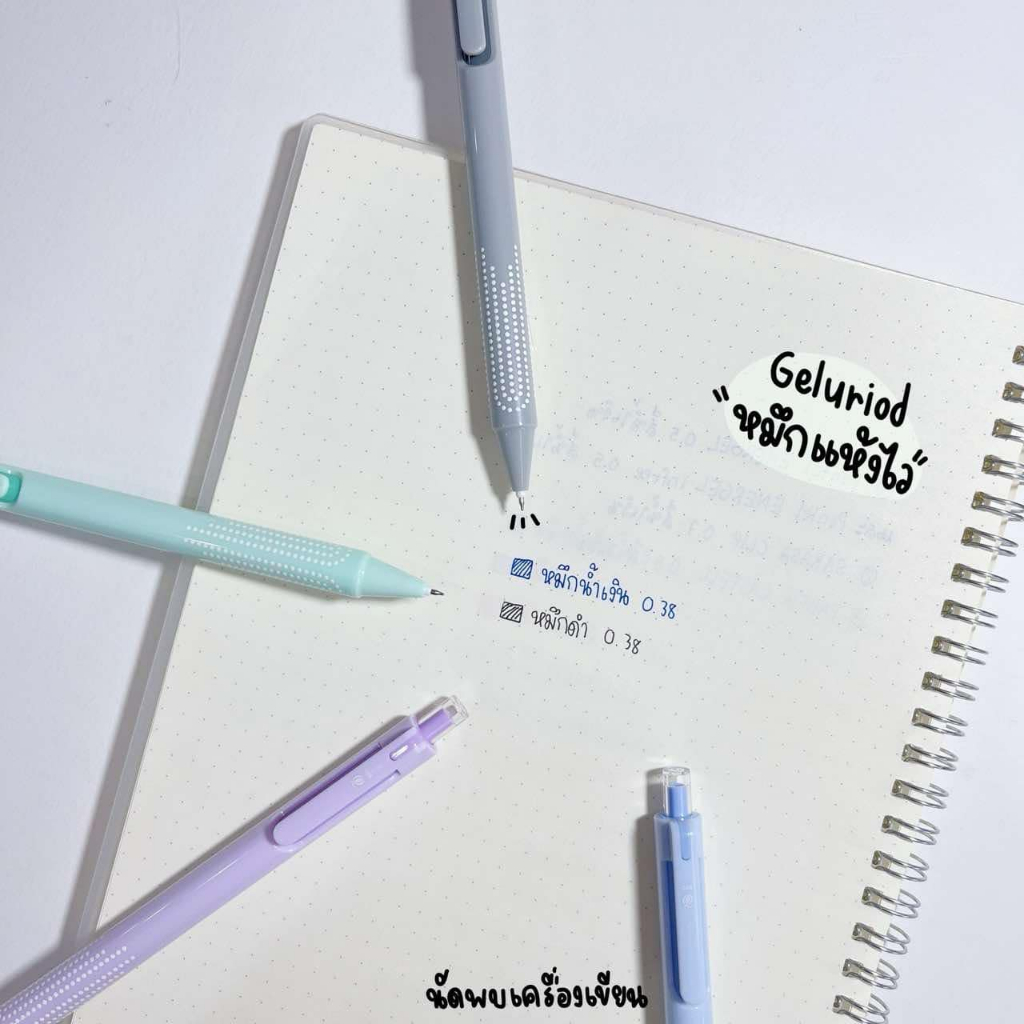 Geluriod
"หมึกแห้งไว"
หมึกน้ำเงิน 0.38
หมึกดำ 0.38
นัดพบเครื่องเขียน